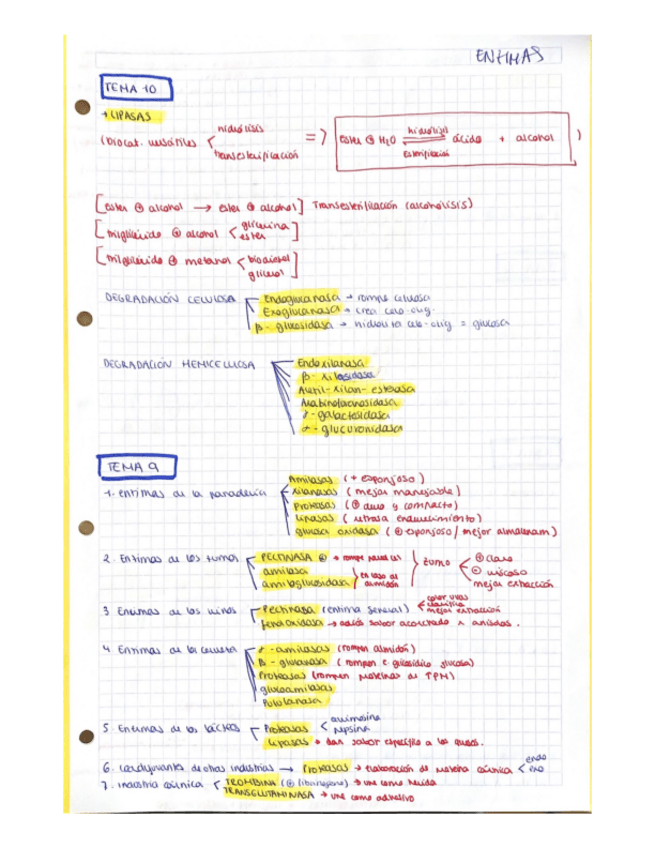 ENZIMAS
TEMA 10
→ LIPASAS
(biocat. versátiles < hidrólisis
transesterificación
=> ester ⊕ H2O hidrólisis ⇌ esterificación ácido + alcohol )
[ester ⊕ alcohol → ester ⊕ alcohol] Transesterificación (alcohólisis)
[triglicérido ⊕ alcohol < glicerina
ester ]
[triglicérido ⊕ metanol < biodiesel
glicerol ]
DEGRADACIÓN CELULOSA
Endoglucanasa → rompe celulosa
Exoglucanasa → crea celo-olig.
β-glucosidasa → hidroliza celo-olig = glucosa
DEGRADACIÓN HEMICELULOSA
Endoxilanasa
β-xilosidasa
Acetil-xilan-esterasa
Arabinofuranosidasa
α-galactosidasa
α-glucuronidasa
TEMA 9
1. enzimas de la panadería
Amilasas (+ esponjoso)
xilanasas (mejor manejable)
Proteasas (⊖ duro y compacto)
Lipasas (retrasa endurecimiento)
glucosa oxidasa (⊕ esponjoso / mejor almacenam)
2. Enzimas de los zumos
PECTINASA ⊕ → rompe pared cel
amilasa
amiloglucosidasa } en caso de almidón
} zumo < ⊕ claro
⊖ viscoso
mejor extracción.
3 Enzimas de los vinos
Pectinasa (enzima general) < color uvas
clarifica
mejor extracción
fenoloxidasa → adiós sabor acorchado x anisoles.
4 Enzimas de la cerveza
α-amilasas (rompen almidón)
β-glucanasa (rompen e. glucosídico glucosa)
Proteasas (rompen proteínas de ↑PM)
glucoamilasas
Pululanasa
5. Enzimas de los lácteos
Proteasas < quimosina
pepsina
Lipasas → dan sabor específico a los quesos.
6. Coadyuvantes de otras industrias → Proteasas → Elaboración de materia cárnica < endo
exo
7. industria cárnica
TROMBINA (⊕ fibrinógeno) → une carne herida
TRANSGLUTAMINASA → une como adhesivo